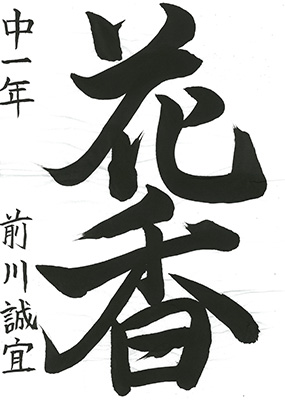 花香
中一年 前川誠宜